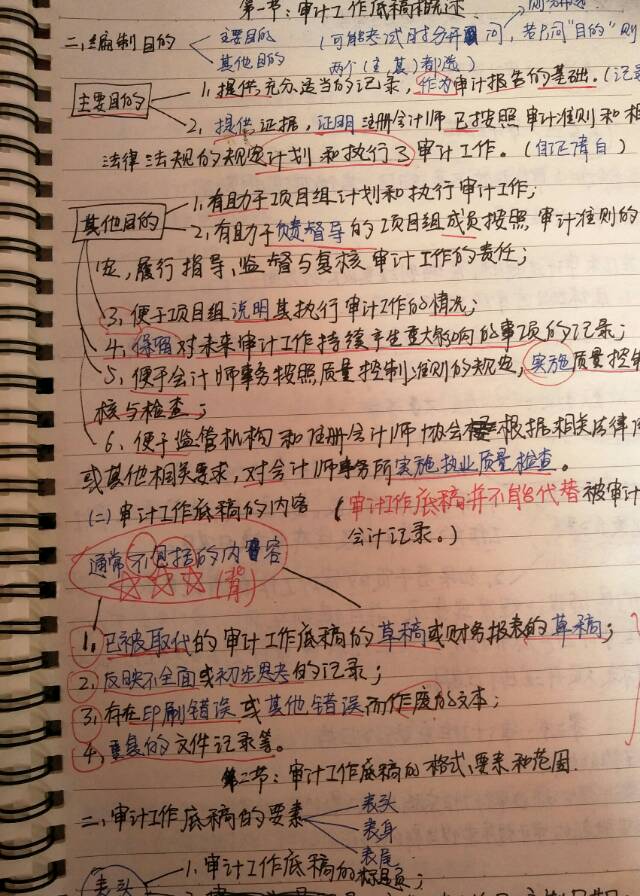 第一节：审计工作底稿概述
二、编制目的
主要目的
其他目的
(可能考试时分开问，若只问"目的"则
两个(主、其)都选)
主要目的
1、提供充分、适当的记录，作为审计报告的基础。(记
2、提供证据，证明注册会计师已按照审计准则和相
法律法规的规定计划和执行了审计工作。(自证清白)
其他目的
1、有助于项目组计划和执行审计工作；
2、有助于负责督导的项目组成员按照审计准则的
定，履行指导、监督与复核审计工作的责任；
3、便于项目组说明其执行审计工作的情况；
4、保留对未来审计工作持续产生重大影响的事项的记录；
5、便于会计师事务按照质量控制准则的规定，实施质量控制
核与检查；
6、便于监管机构和注册会计师协会根据相关法律
或其他相关要求，对会计师事务所实施执业质量检查。
(二)审计工作底稿的内容
(审计工作底稿并不能代替被审计
会计记录。)
通常不包括的内容
☆☆☆(背)
1、已被取代的审计工作底稿的草稿或财务报表的草稿；
2、反映不全面或初步思考的记录；
3、存在印刷错误或其他错误而作废的文本；
4、重复的文件记录等。
第二节：审计工作底稿的格式、要素和范围
二、审计工作底稿的要素
表头
表身
表尾
表头
1、审计工作底稿的标题；